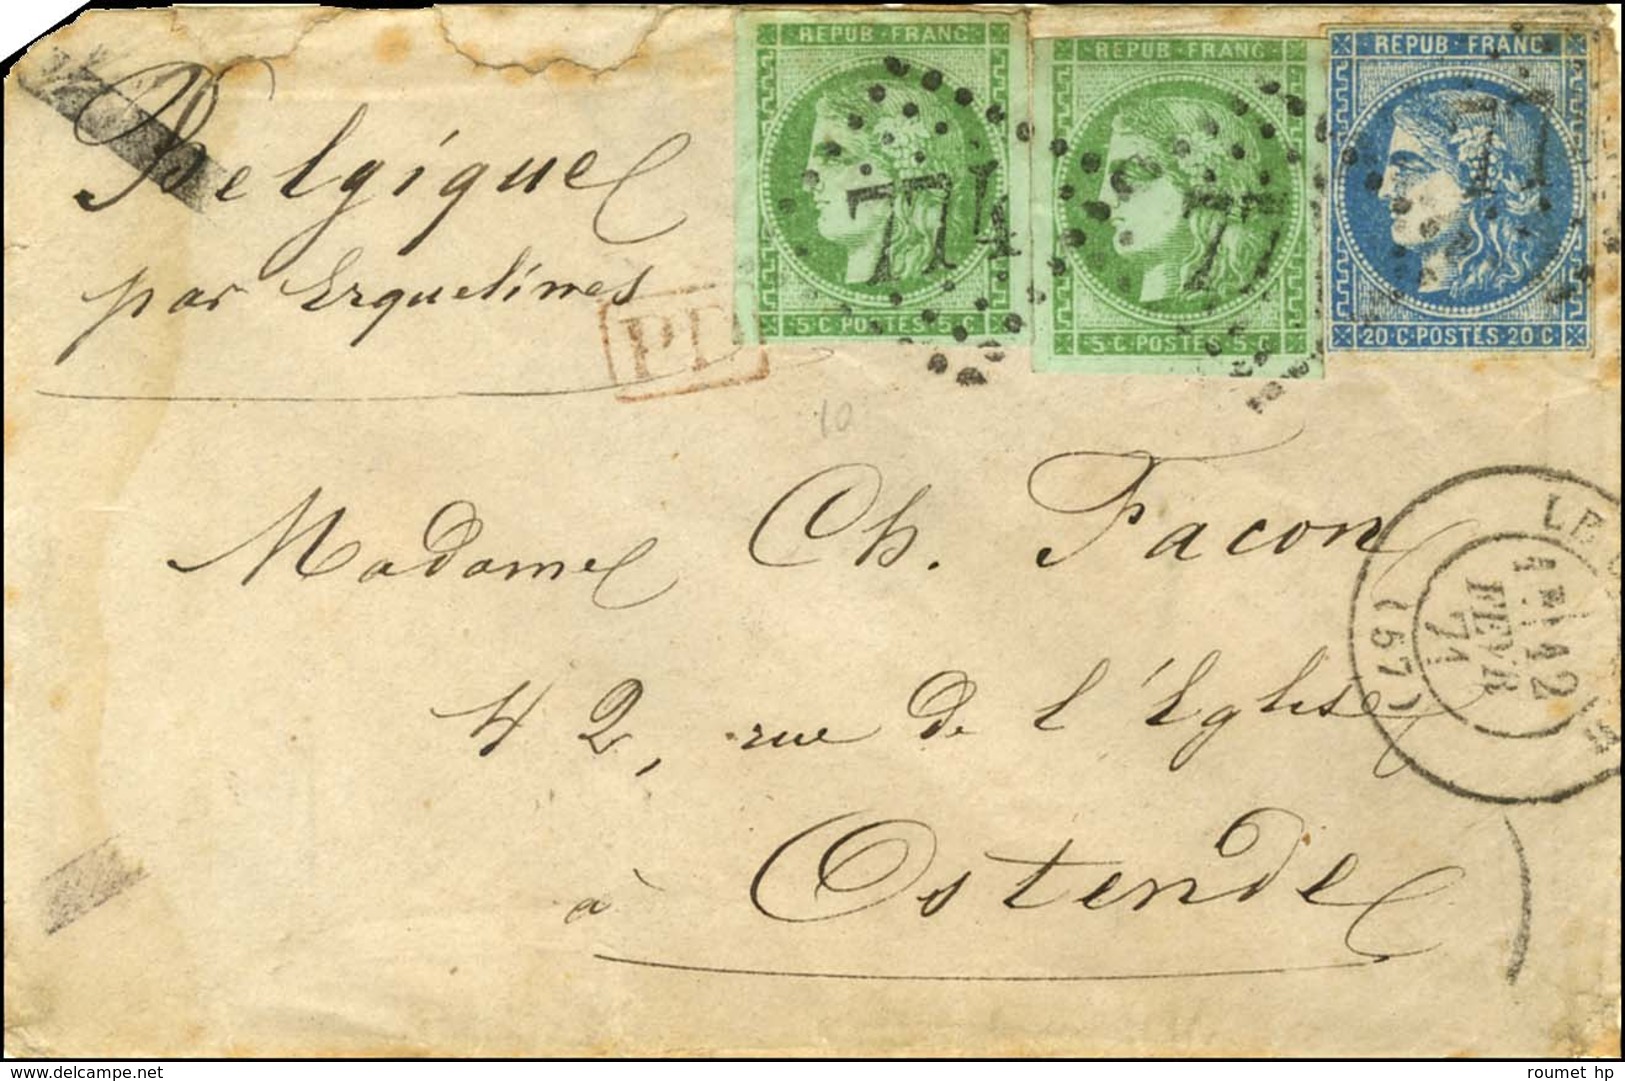 REPUB·FRANC
REPUB·FRANC
REPUB·FRANC
Belgique
par Erquelines
PD
774
77
77
5·C·POSTES·5·C
5·C·POSTES·5·C
20·C·POSTES·20·C
10
Madame Ch. Facon
42, rue de l'Eglise
à Ostende
12
FEVR
71
(57)
www.delcampe.net
roumet hp